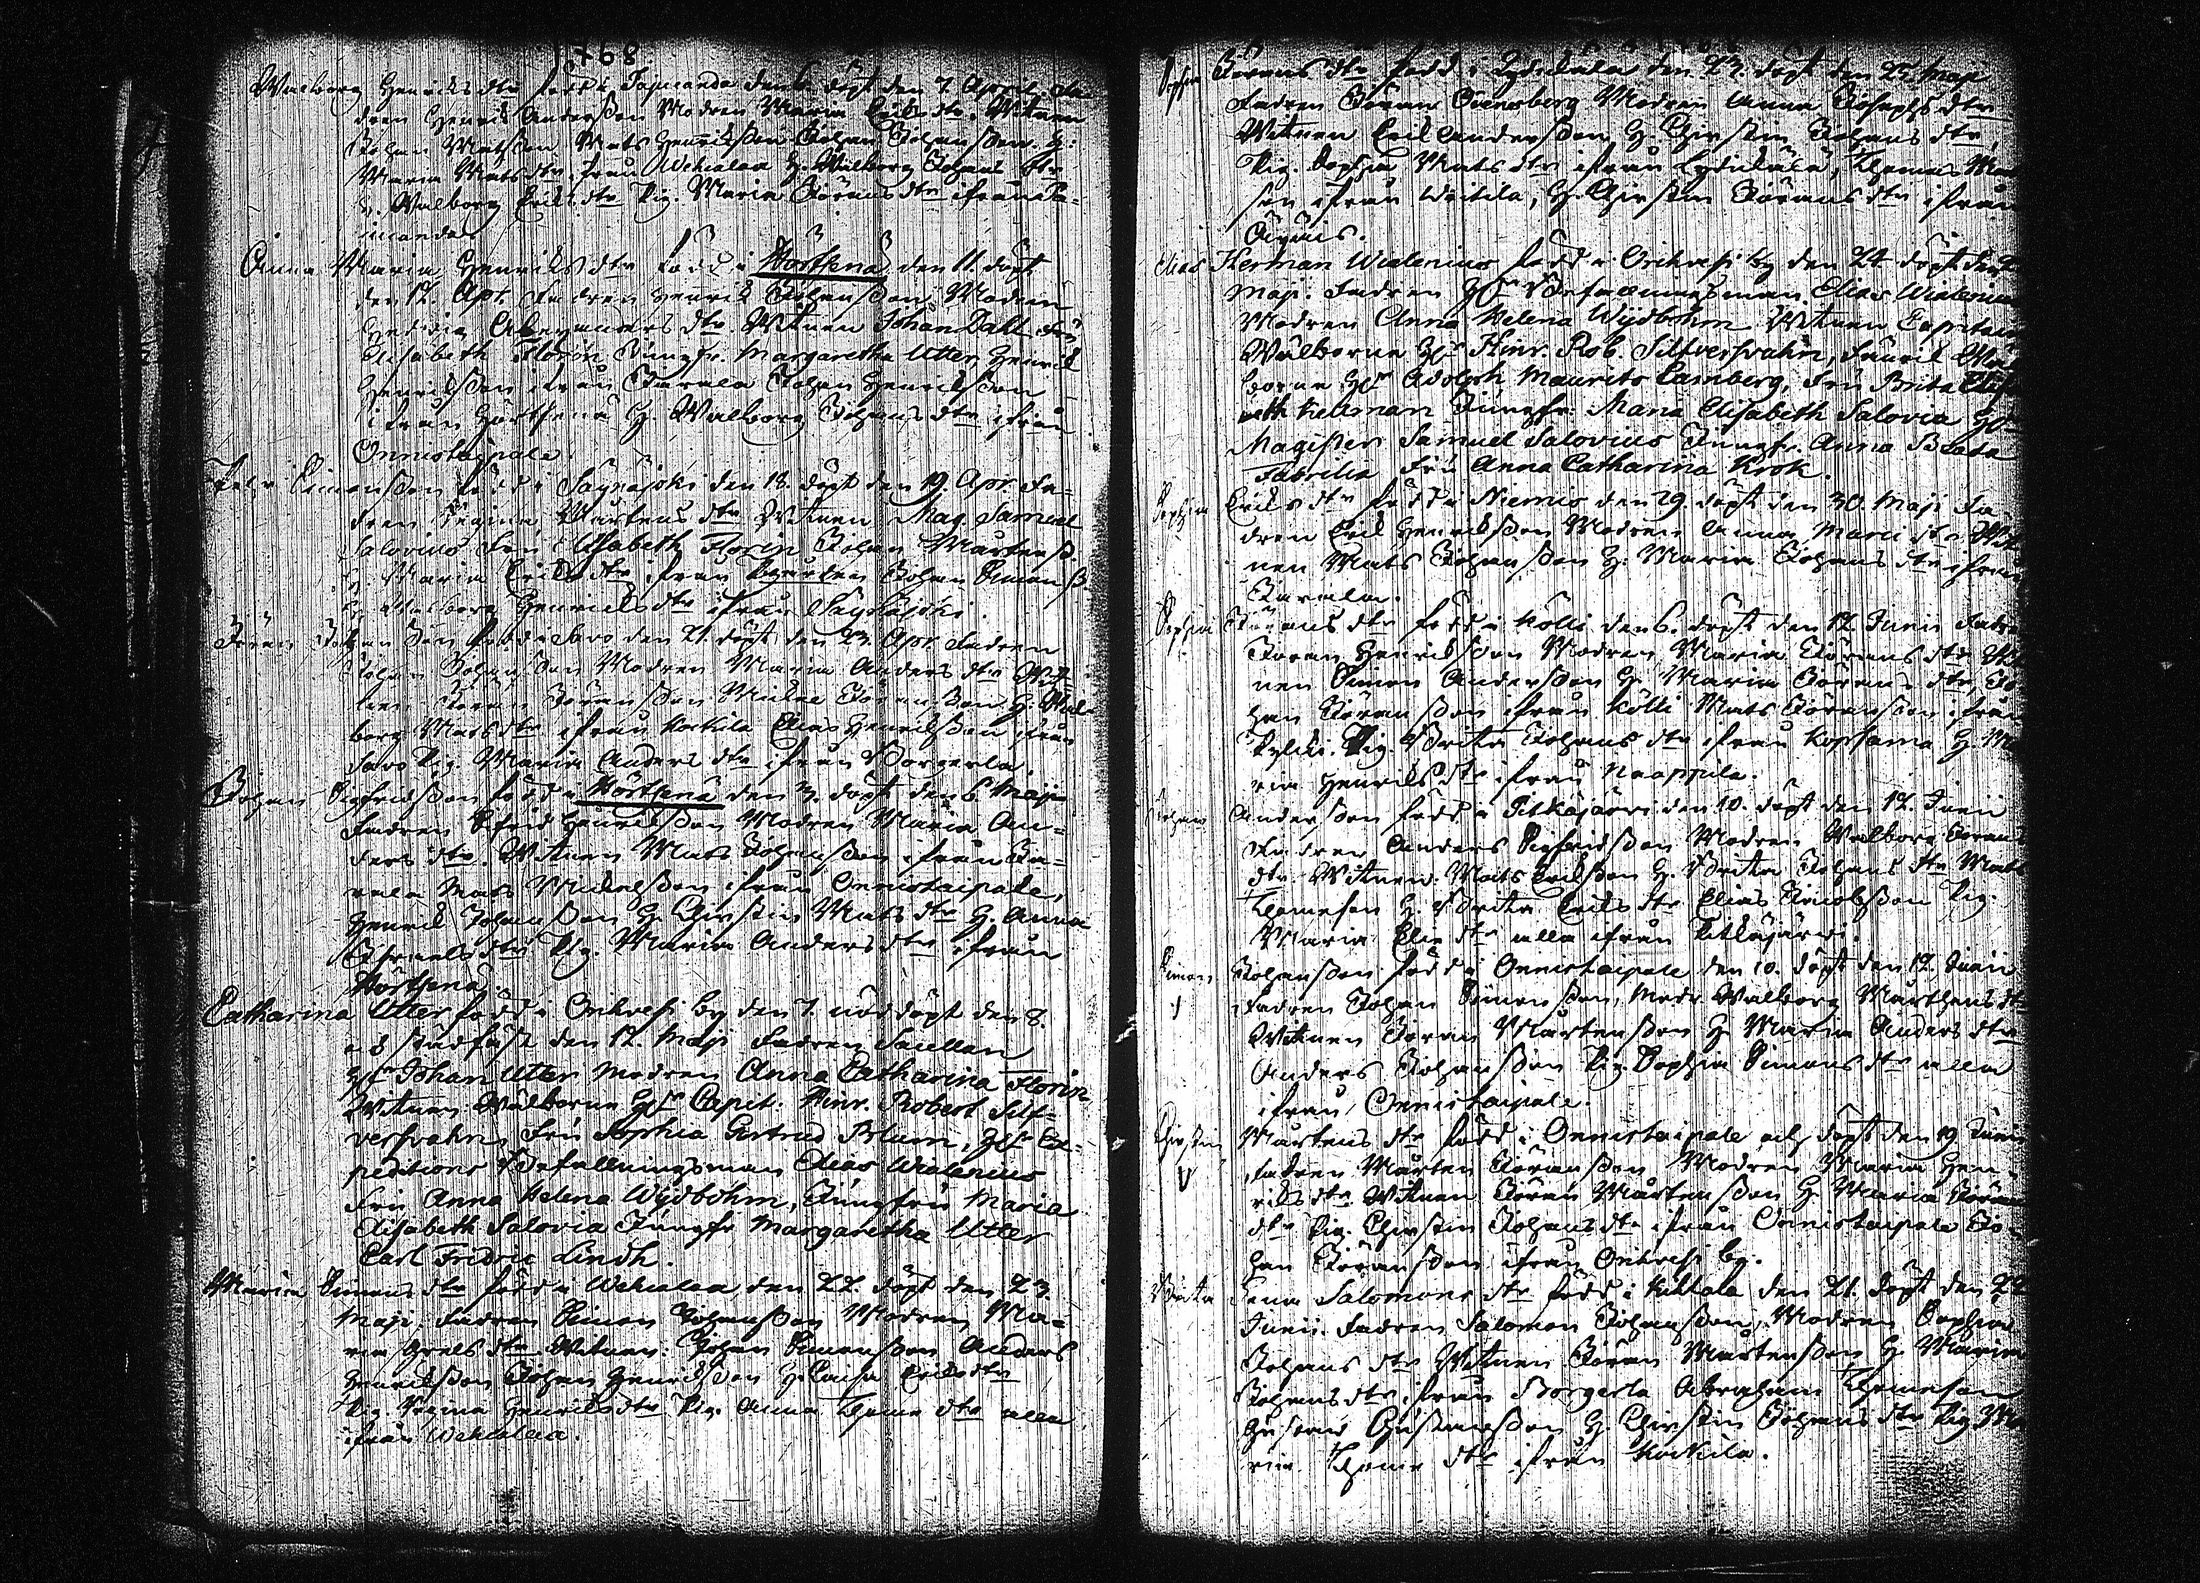 1768
Walborg Henriks dtr född i Tojmanda den 6. döpt den 7. April. Fa-
dren Henrik Andersson Modren Maria Eriks dtr. Witnen
Johan Matsson Mats Henriksson Johan Johansson H:
Maria Mats dtr ifrån Wehialaa H. Walborg Johans dtr
H. Walborg Eriks dtr Pig. Maria Jörans dtr ifrån To-
manda
Anna Maria Henriks dtr född i Hörthenä den 11. döpt
den 12. Apr. Fadren Henrik Johansson Modren
Hedvig Alexanders dtr. Witnen Johan Dahl Fru
Elisabeth Florin Jungfr. Margaretha Utter, Henrik
Henriksson ifrån Jarvela Johan Henriksson
ifrån Hörthenä H. Walborg Johans dtr ifrån
Onnistaipale.
Simonsson född i Säynäjöki den 18. döpt den 19. Apr. Fa-
dren Regina Mårtens dtr Witnen Mag. Samuel
Salovius Fru Elisabeth Florin Johan Mårtenss.
H. Maria Eriks dtr ifrån Johan Simonss.
H. Walborg Henriks dtr ifrån Säynäjöki.
Jöran Johansson född i Savo den 21. döpt den 23. Apr. Fadren
Johan Johansson Modren Maria Anders dtr Wit-
nen Jöran Jöransson Mickel Jöransson H. Wal-
borg Mats dtr ifrån Korkila Elias Henriksson ifrån
Savo Pig. Maria Anders dtr ifrån Borgerla.
Johan Sigfridsson född i Hörthenä den 3. döpt den 6. Maji
Fadren Sigfrid Henriksson Modren Maria An-
ders dtr. Witnen Mats Johansson ifrån Ja-
vala Mats Mickelsson ifrån Onnistaipale,
Henrik Johansson H. Christin Mats dtr H. Anna
Israels dtr Pig. Maria Anders dtr ifrån
Hörthenä.
Catharina Utter född i Orihvesi by den 7. nöddöpt den 8.
och stadfäst den 12. Maji Fadren Sacellan
Hr Johan Utter Modren Anna Catharina Florin
Witnen Wälborne Hr Capit: Hinr. Robert Silf-
versvahn, Fru Sophia Gertrud Blum, Hr Ex-
peditions Befallningsman Elias Wialenius
Fru Anna Helena Wijdbohm, Jungfru Maria
Elisabeth Salovia Jungfr Margaretha Utter
Carl Fredric Lindh.
Maria Simons dtr född i Wehialaa den 22. döpt den 23.
Maji. Fadren Simon Johansson Modren Ma-
ria Grels dtr. Witnen: Johan Simonsson Anders
Henriksson Johan Henriksson H. Caisa Eriks dtr
Pig. Regina Henriks dtr Pig. Anna Thoma dtr alla
ifrån Wehialaa.
Sophia Jörans dtr född i Lydikälä den 23. döpt den 25. Maji
Fadren Jöran Modren Anna Josephs dtr
Witnen Erik Andersson H. Christin Johans dtr
Pig. Sophia Mats dtr ifrån Lydikälä, Thomas Mat
son ifrån Weitila, H. Christin Jörans dtr ifrån
Elias Herman Wialenius född i Orihvesi by den 24 döpt den
Maji. Fadren Hr Befallningsman Elias Wialenius
Modren Anna Helena Wijdbohm Witnen Capitain
Wälborne Hr Hinr. Rob. Silfversvahn, Fänrik Wäl
borne Hr Adolph Maurits Camberg, Fru Brita Elisa
beth Hellman Jungfr: Maria Elisabeth Salovia Hr
Magister Samuel Salovius Jungfr. Anna Beata
Fabrilia Fru Anna Catharina Krok.
Sophia Eriks dtr född i Niemis den 29. döpt den 30. Maji Fa-
dren Erik Henriksson Modren Anna dtr Wit
nen Mats Johansson H. Maria Johans dtr ifrån
Javala.
Sophia Jörans dtr född i Kölli den 6. döpt den 12. Junii Fadren
Jöran Henriksson Modren Maria Jörans dtr Wit
nen Simon Andersson H. Maria Jörans dtr, Jo
han Jöransson ifrån Kölli Mats Jöransson ifrån
Pig. Brita Johans dtr ifrån Kopsama H. Ma
ria Henriks dtr ifrån Naappila.
Johan Andersson född i Pitkäjärvi den 10. döpt den 12. Junii
Fadren Anders Sigfridsson Modren Walborg Jörans
dtr. Witnen: Mats Eriksson H. Brita Johans dtr Mats
Thomeson H. Brita Eriks dtr Elias Jacobsson Pig.
Maria Elie dtr alla ifrån Pitkäjärvi.
Simon Johansson född i Onnistaipale den 10. döpt den 12. Junii
Fadren Johan Simonsson, Modr. Walborg Mårthens dtr
Witnen Jöran Mårtensson H. Maria Anders dtr
Anders Johansson Pig. Sophia Simons dtr alla
ifrån Onnistaipale.
Christin Mårtens dtr född i Onnistaipale och döpt den 19 Junii
Fadren Mårten Jöransson Modren Maria Hen-
riks dtr Witnen Jöran Mårtensson H. Maria Jörans
dtr Pig. Christin Johans dtr ifrån Onnistaipale Jo-
han Jöransson ifrån Orihvesi by.
Brita Lena Salomons dtr född i Kuktala den 21. döpt den 24
Junii. Fadren Salomon Johansson, Modren Sophia
Johans dtr Witnen Jöran Mårtensson H. Maria
Johans dtr ifrån Borgerla Abraham Thomeson
Gustav Gustavsson H. Christin Johans dtr Pig. Ma
ria Thome dtr ifrån Korkila.